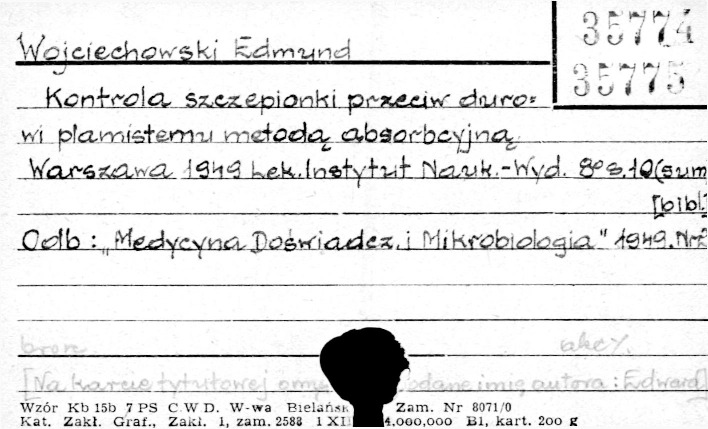 35774
Wojciechowski Edmund
35775
Kontrola szczepionki przeciw duro=
wi plamistemu metodą absorbcyjną
Warszawa 1949 Lek.Instytut Nauk.-Wyd. 8° s.10(sum
[bibl.]
Odb : „Medycyna Doświadcz. i Mikrobiologia" 1949. Nr2
brosz. akcy.
[Na karcie tytułowej podane imię autora : Edward]
Wzór Kb 15b 7 PS C.W D. W-wa Bielańsk Zam. Nr 8071/0
Kat. Zakł. Graf., Zakł. 1, zam. 2588 1 XII 4.000,000 B1, kart. 200 g